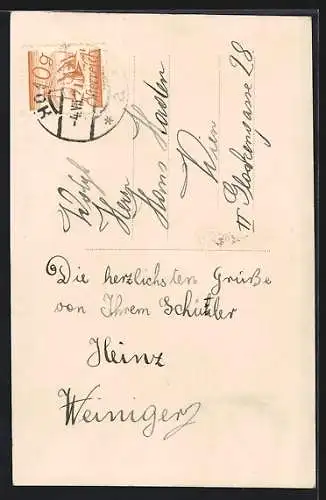 10g
Wohlg.
Herrn
Hans Haslen
Wien
II Glockengasse 28.
Die herzlichsten Grüße
von Ihrem Schühler
Heinz
Weiniger